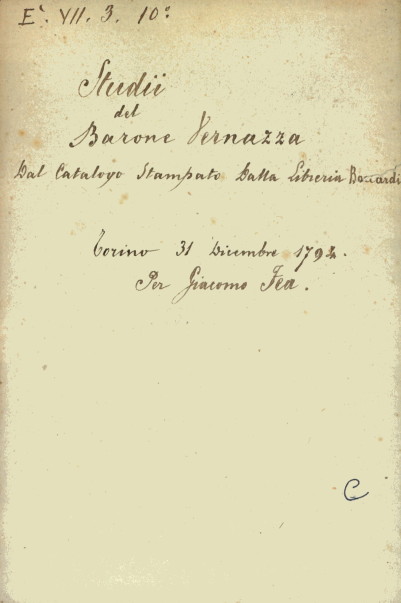 E`. VII. 3. 10:
Studii
del
Barone Vernazza
Dal Catalogo Stampato Dalla Libreria
Torino 31 Dicembre 1792.
Per Giacomo Fea.
C